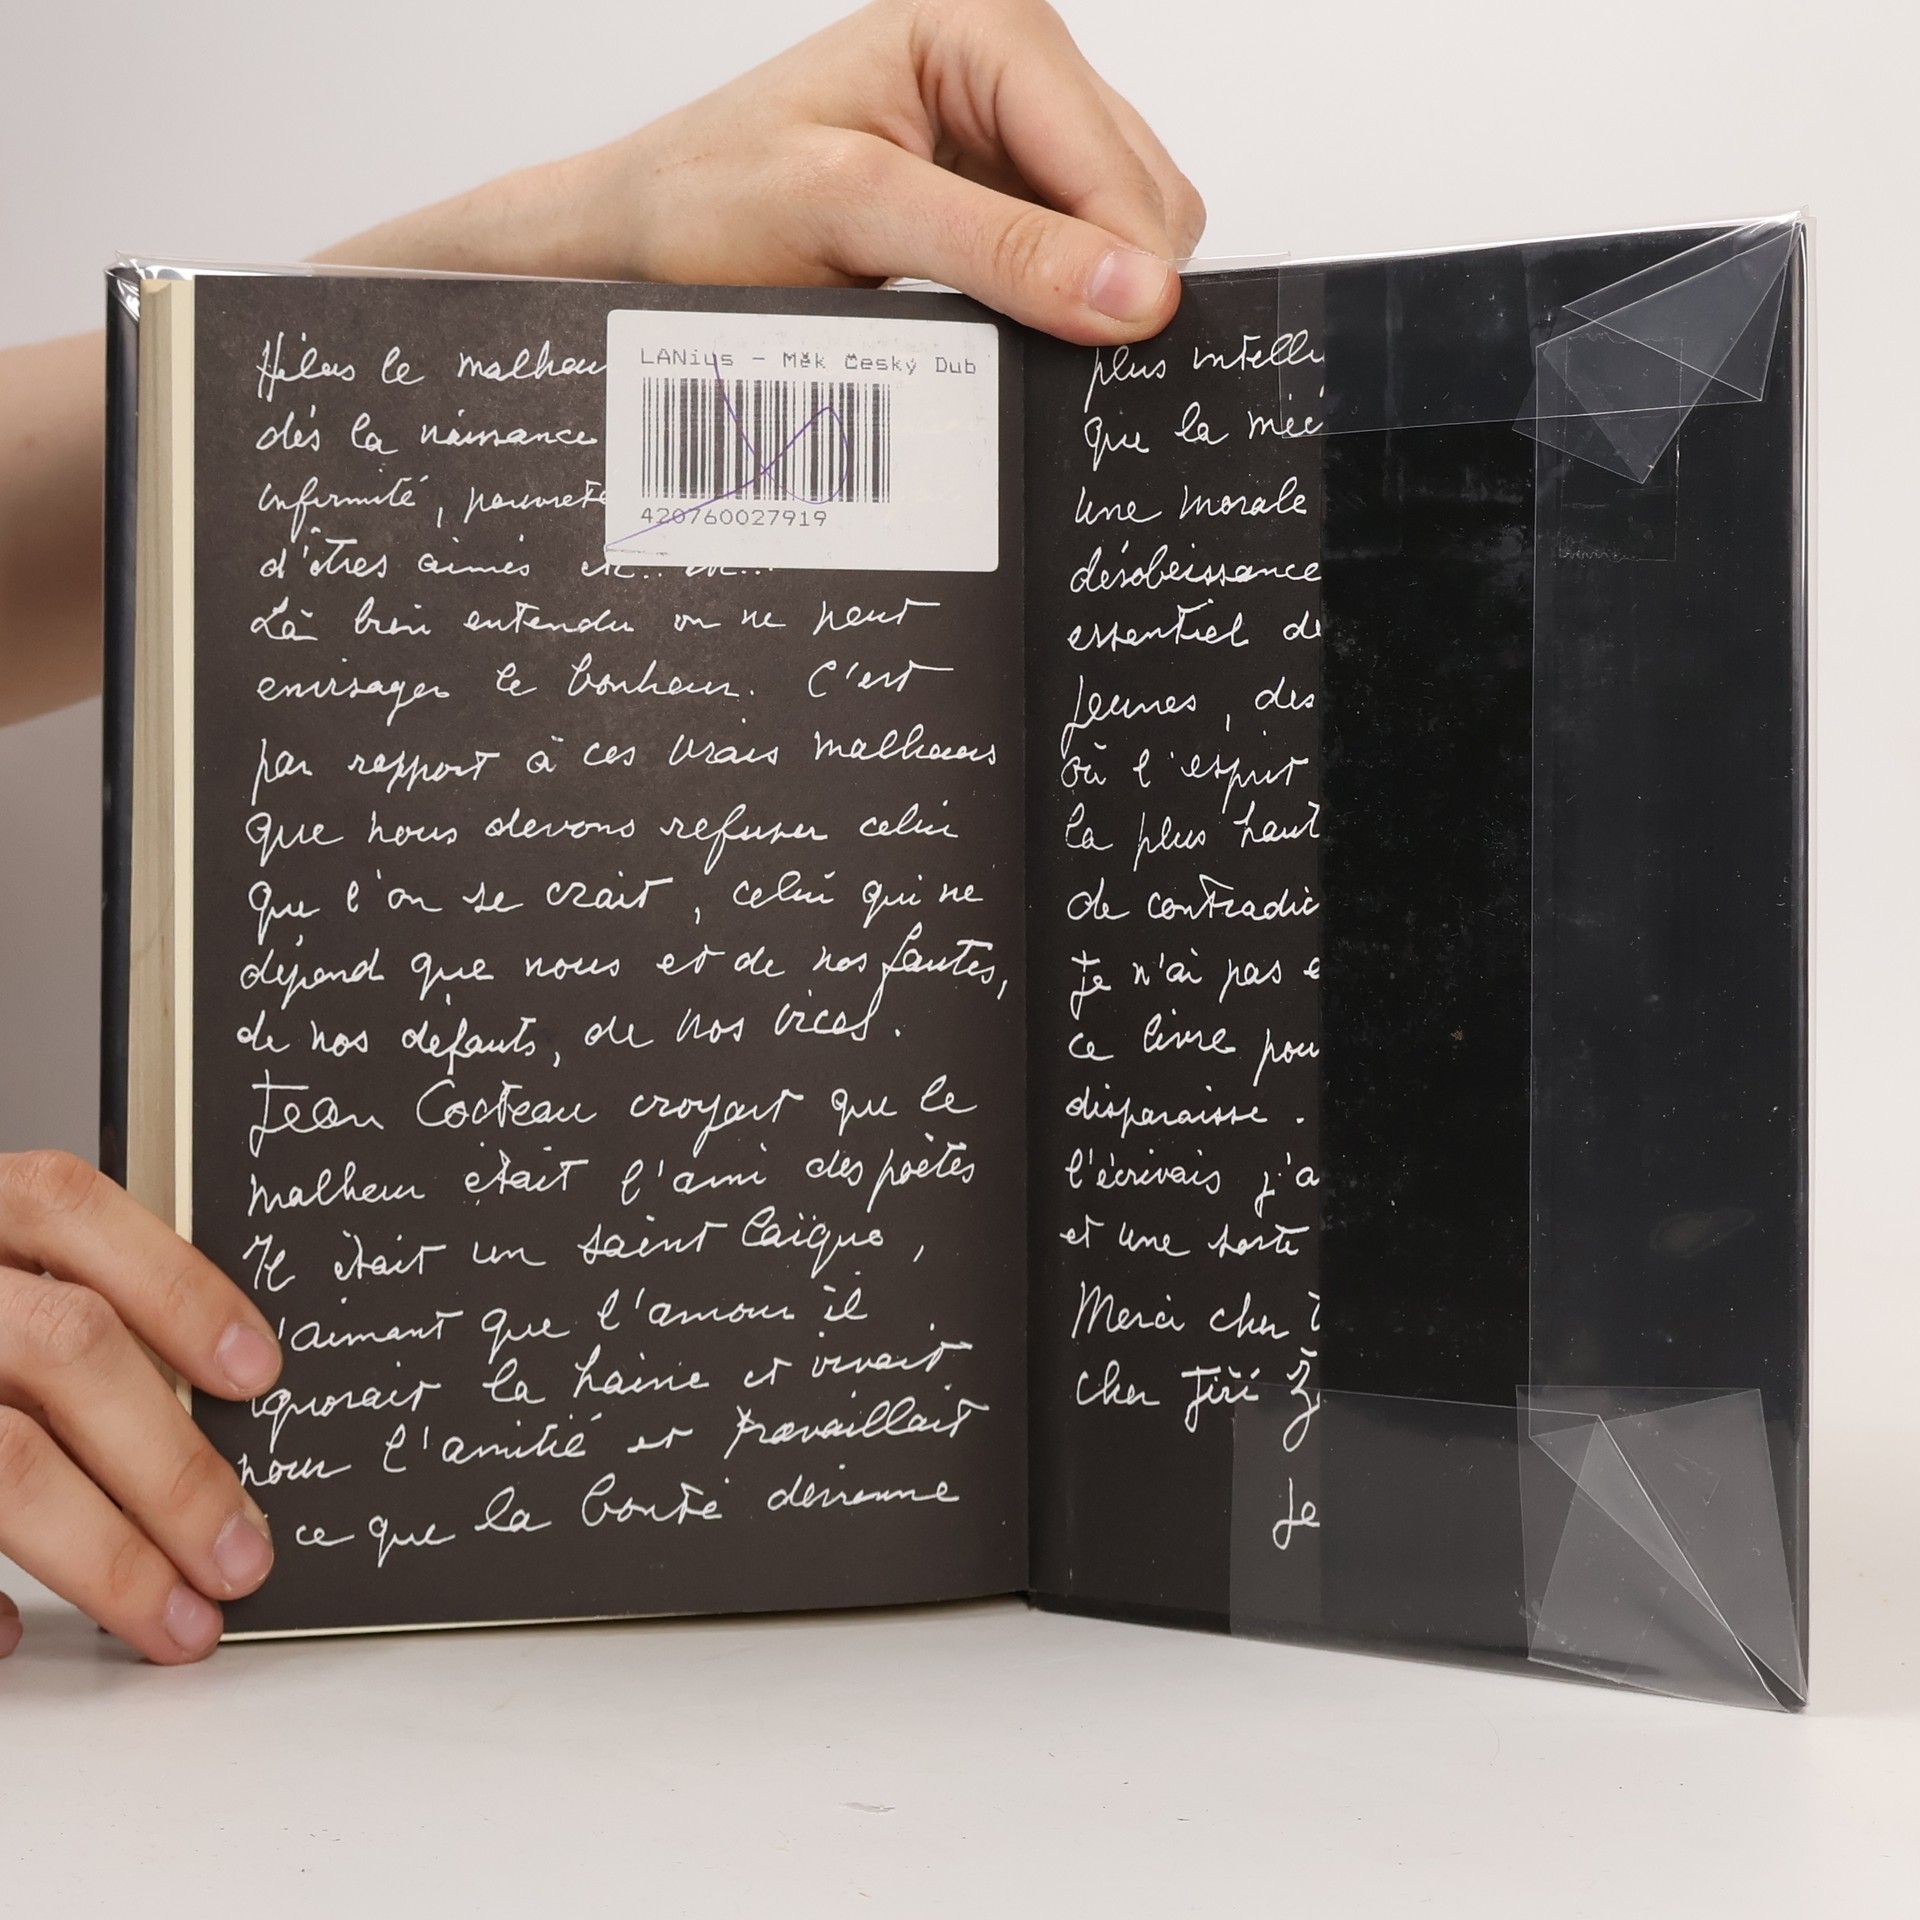 Hélas le malheu
dès la naissance
infirmité, pauvreté
d'êtres aimés etc.. etc...
Là bien entendu on ne peut
envisager le bonheur. C'est
par rapport à ces vrais malheurs
que nous devons refuser celui
que l'on se crait, celui qui ne
dépend que nous et de nos fautes,
de nos défauts, de nos vices.
Jean Cocteau croyait que le
malheur était l'ami des poètes
Il était un saint laïque,
'aimant que l'amour il
ignorait la haine et vivait
pour l'amitié et travaillait
ce que la bonté devienne
LANius - Měk Český Dub
420760027919
plus intelli
que la méc
une morale
désobeissance
essentiel de
jeunes, des
où l'esprit
la plus haut
de contradic
Je n'ai pas e
ce livre pou
disparaisse.
l'écrivais j'a
et une sorte
Merci cher
cher Jiří Ž
Je